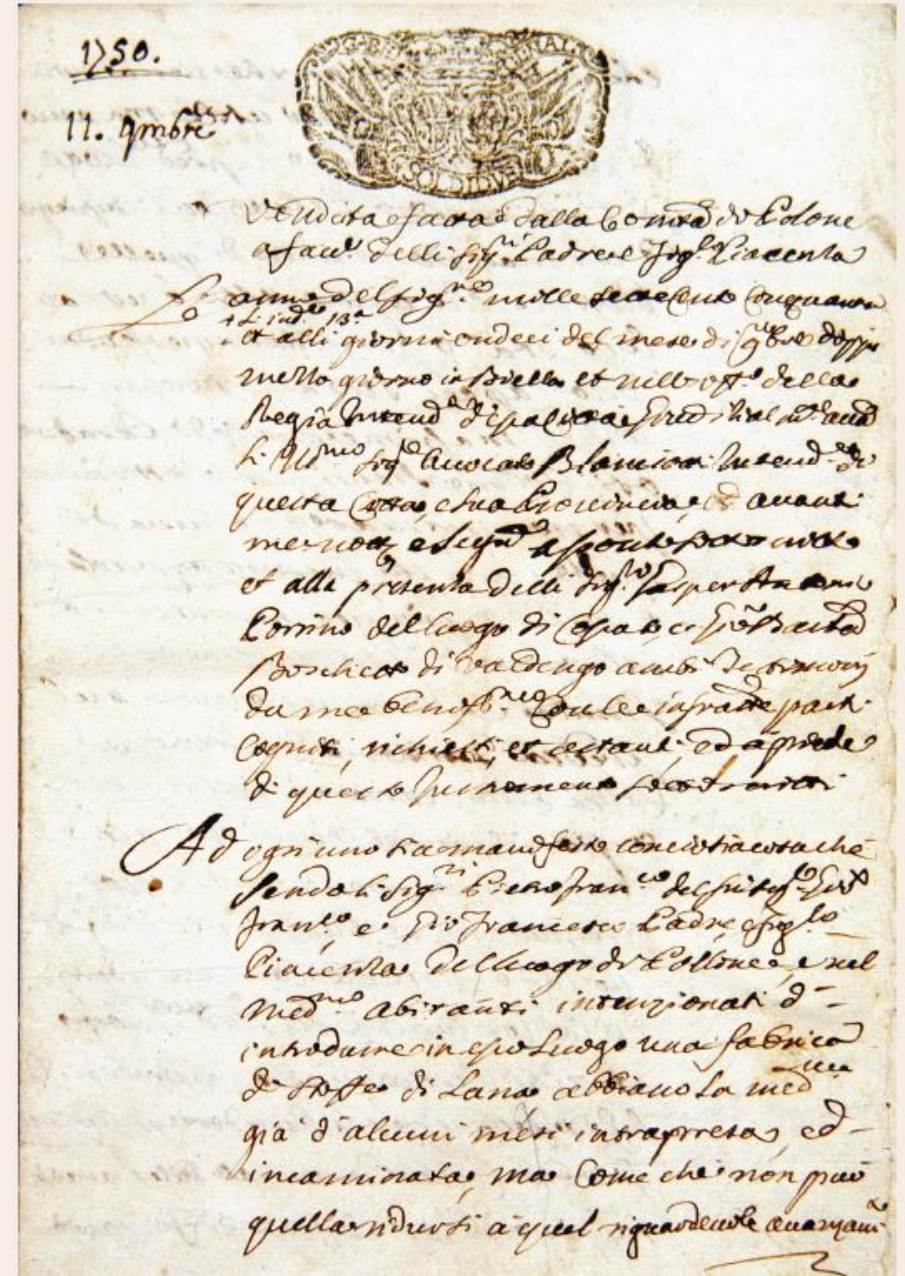 1750.
11. 9mbre
SOLDI DUE
Vendita fatta dalla Comtà di Polone
a favre delli Sigri Padre e Figlo Piacenza
L'anno del Sigre mille sette cento cinquanta
et alli giorni undeci del mese di 9bre doppo
mezzo giorno in Biella et nell'offo della
Regia Intenda
li Sigr Avocato Blanciotti Intendte di
questa Città, e sua Provincia, ed avanti
me
et alla presenza delli Sigri Gasper Antonio
Porrino del luogo di Cossato, e Gio Batta
Boschetto di Valdengo ambi Testimonij
da me con le infratte parti
cogniti, richiesti, et astanti ed a piede
di questo Instromento sottoscritti
Ad ogn'uno sia manifesto conciosiacosa che
sendo li Sigri Pietro Franco del fu Sigr Gio
Franco e Gio Francesco Padre e figlo
Piacenza del luogo di Pollone, e nel
medmo abitanti intenzionati d'
introdurre in esso Luogo una fabrica
di stoffe di Lana abbiano la medma
già d'alcuni mesi intrapresa, ed
incaminata, ma come che non può
quella ridursi a quel riguardevole avanzam